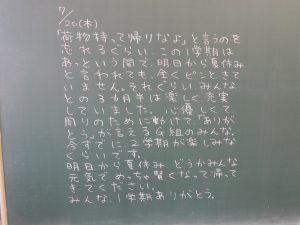 7/20(木)
「荷物持って帰りなよ」と言うのを
忘れるぐらい、この1学期は
あっという間で、明日から夏休み
と言われても、全くピンときて
いません。それぐらいみんな
との3ヵ月半は楽しく充実
していました。心優しくて
周りのために動けて「ありが
とう」が言えるG組のみんな。
今すでに、2学期が楽しみな
くらいです。
明日から夏休み どうかみんな
元気でめっちゃ賢くなって帰って
きてください。
みんな、1学期ありがとう。